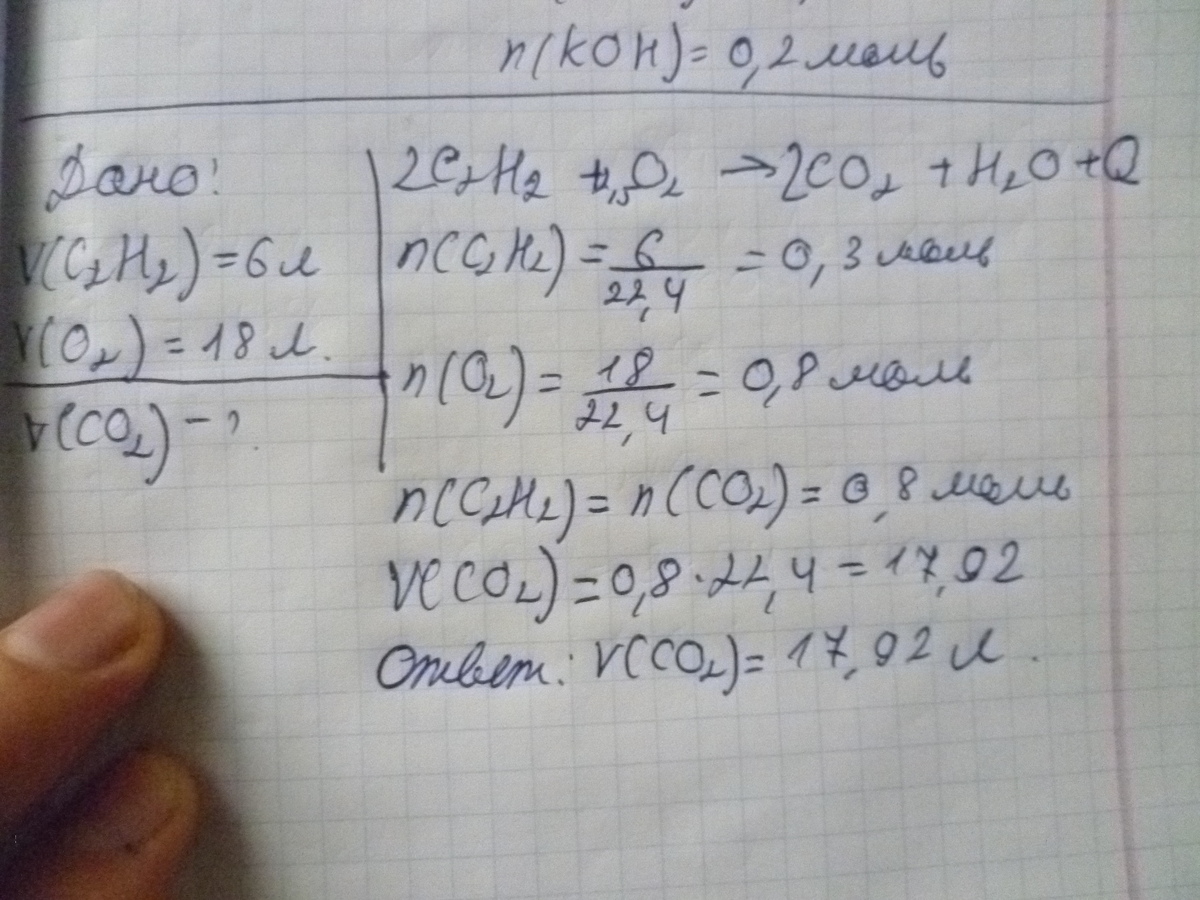 n(KOH) = 0,2 моль
Дано:
V(C₂H₂) = 6 л
V(O₂) = 18 л.
V(CO₂) - ?
2C₂H₂ + 2,5 O₂ → 2CO₂ + H₂O + Q
n(C₂H₂) = 6/22,4 = 0,3 моль
n(O₂) = 18/22,4 = 0,8 моль
n(C₂H₂) = n(CO₂) = 0,8 моль
V(CO₂) = 0,8 · 22,4 = 17,92
Ответ: V(CO₂) = 17,92 л.